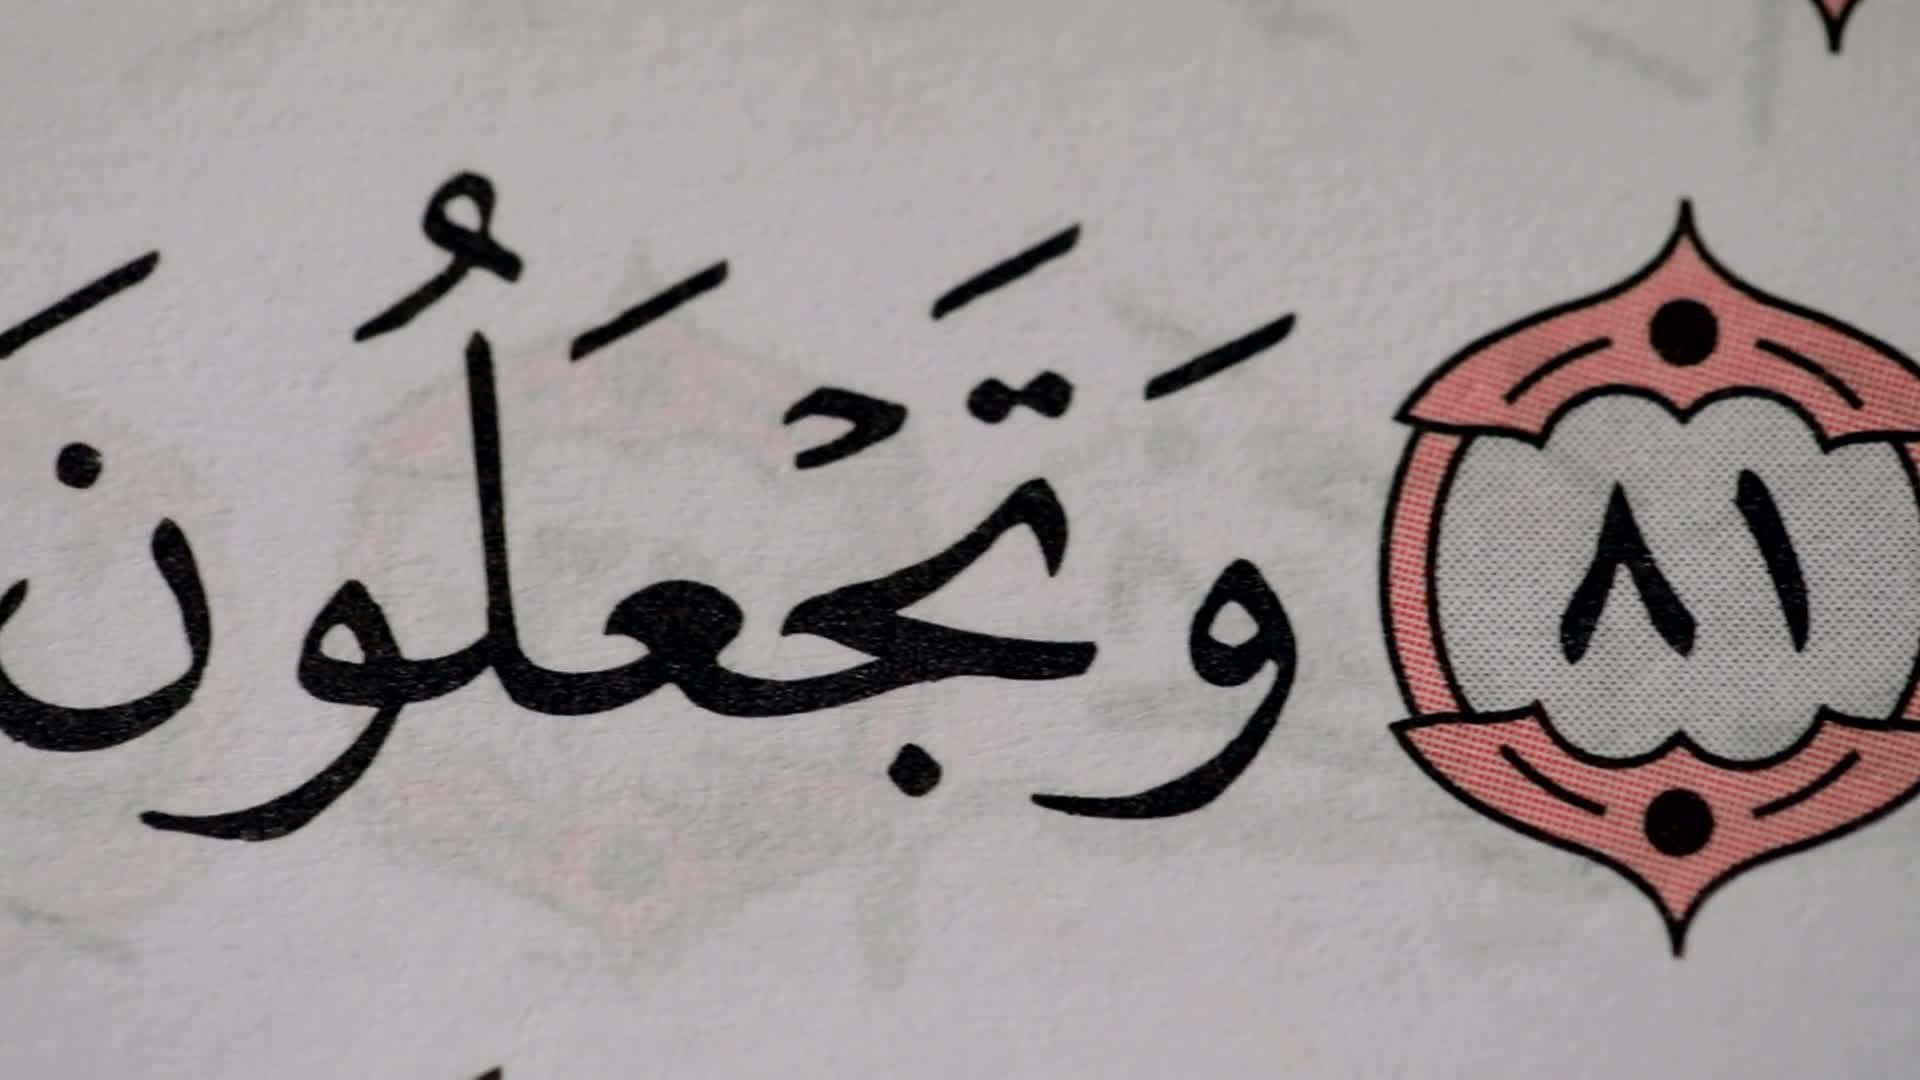 ٨١ وَتَجۡعَلُونَ